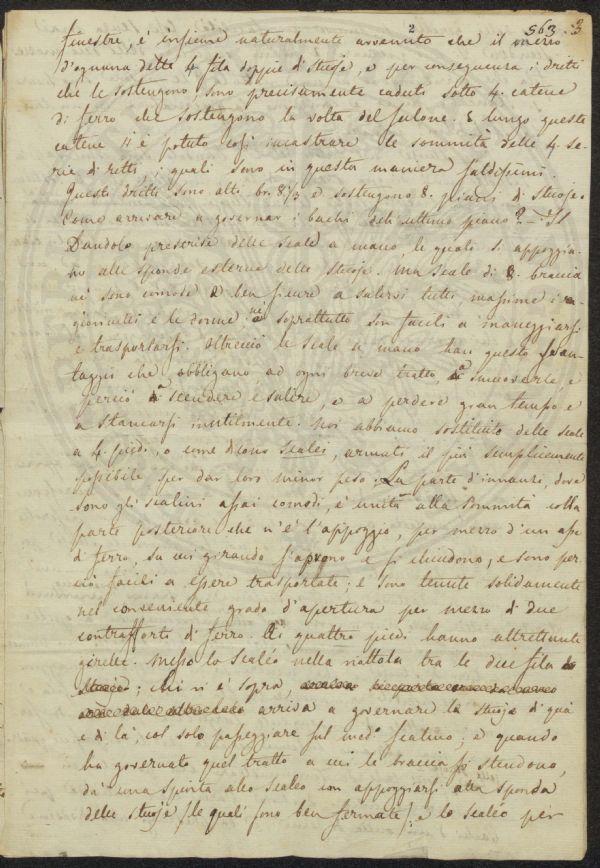 2 563. 3
finestre, è insieme naturalmente avvenuto che il mezzo
d'ognuna delle 4 fila doppie di stuoje, e per conseguenza i dritti
che le sostengono sono precisamente caduti sotto 4. catene
di ferro che sostengono la volta del salone. E lungo queste
catene si è potuto così incastrare le sommità delle 4 se-
rie di ritti, i quali sono in questa maniera saldissimi.
Questi dritti sono alti br. 8 1/3 e sostengono 8. piani di stuoje.
Come arrivare a governar i bachi dell'ultimo piano? – Il
Dandolo prescrisse delle scale a mano, le quali s'appoggia-
no alle sponde esterne delle stuoje. Ma scale di 8. braccia
nè sono comode e ben sicure a salirsi tutti, massime i
giovinetti e le donne nè soprattutto son facili a maneggiarsi
e trasportarsi. Oltreciò le scale a mano han questo svan-
taggio che obbligano, ad ogni breve tratto, a smuoverle, e
perciò a scendere e salire, e a perdere gran tempo e
a stancarsi inutilmente. Noi abbiamo sostituito delle scale
a 4. piedi, o come diconsi scalèi, armati il più semplicemente
possibile per dar loro minor peso. La parte d'innanzi, dove
sono gli scalini assai comodi, è unita alla sommità colla
parte posteriore che n'è l'appoggio, per mezzo d'un asse
di ferro, su cui girando s'aprono e si chiudono, e sono per-
ciò facili a essere trasportate; e sono tenute solidamente
nel conveniente grado d'apertura per mezzo di due
contrafforti di ferro. Ai quattro piedi hanno altrettante
girelle. Messo lo scalèo nella viottola tra le due fila
chi vi è sopra,
arriva a governare la stuoja di quà
e di là, col solo passeggiare sul med.o scalino; e quando
ha governato quel tratto a cui le braccia si stendono,
dà una spinta allo scalèo con appoggiarsi alla sponda
delle stuoje (le quali sono ben fermate); e lo scalèo per